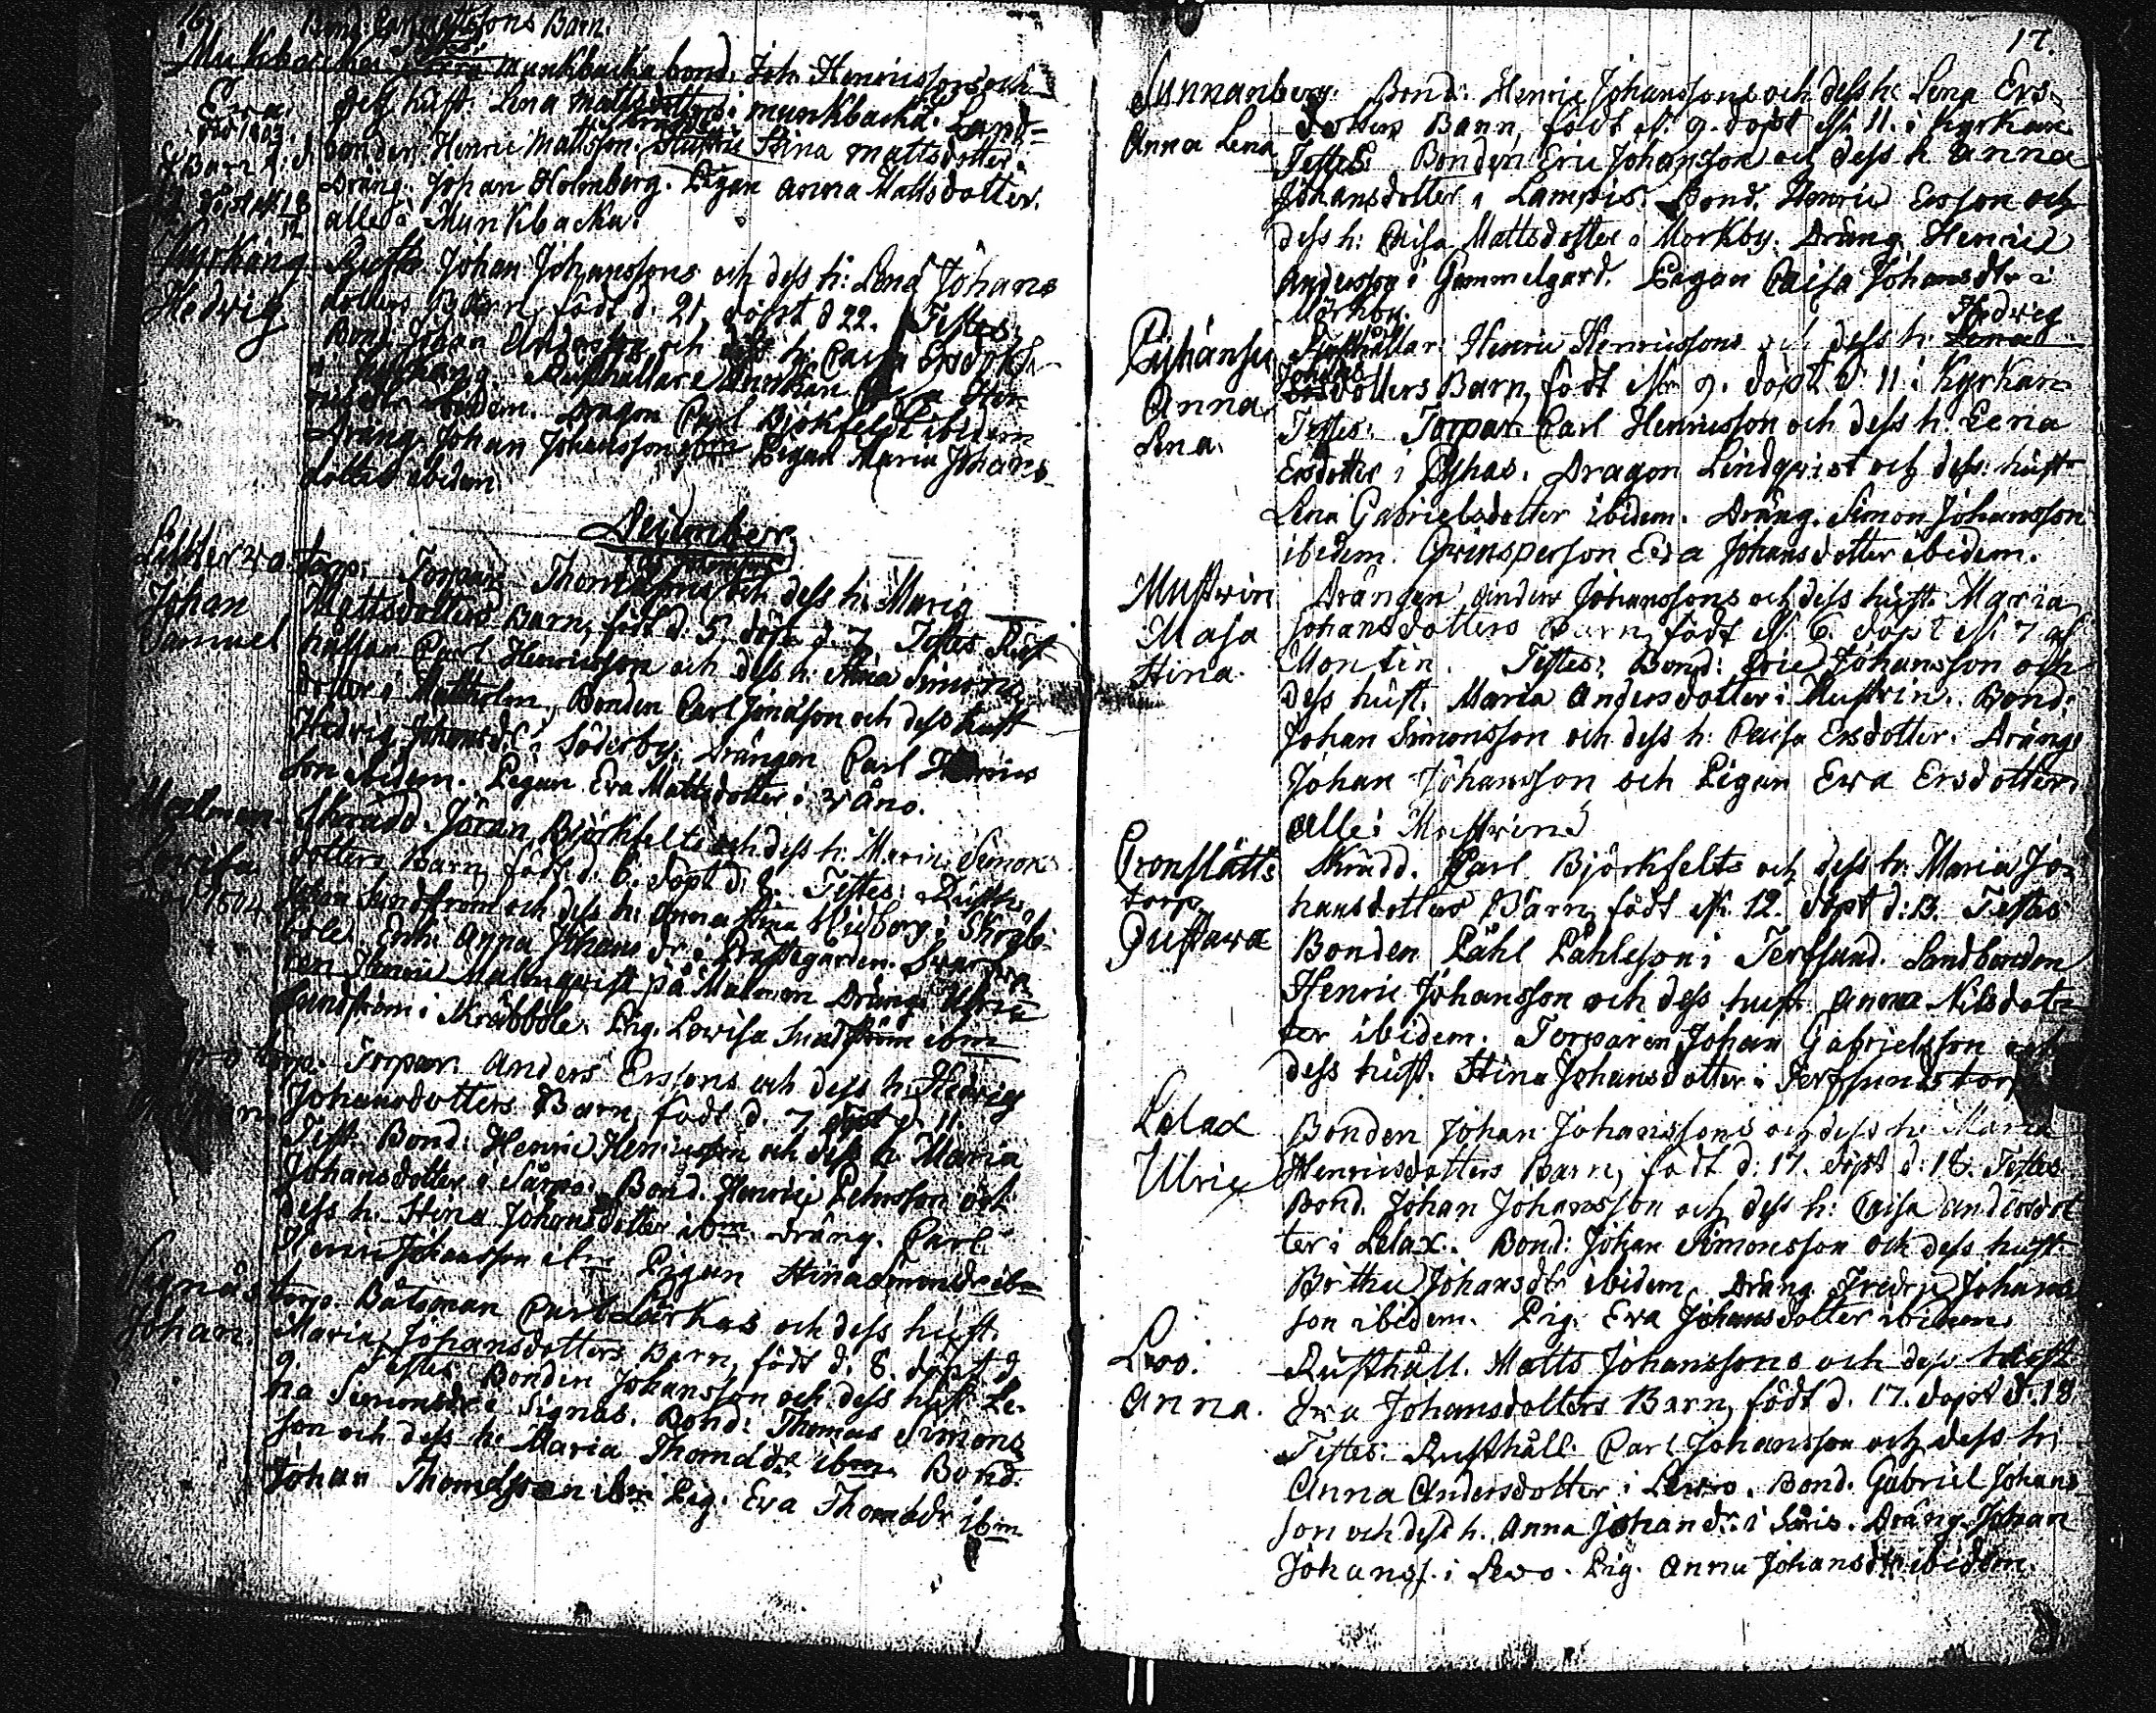 16.
Bond: Carl Mattssons Barn.
Munkbacka munkbacka bond. Joh. Henricssons och
Eva. dess husft. Lena Mattsdotter i munkbacka. Land-
bonden Henric Mattsson. Stina Mattsdotter.
Dräng. Johan Holmberg. Pigan Anna Mattsdotter.
alle i Munkbacka.
Kyrkäng. Johan Johanssons och dess h: Lena Johans
Hedvig dotters Barn, födt d. 21. döpt d 22. Testes:
Bond. Johan Andersson och dess h: Caisa
i Kyrkäng. Rusthållare Änckan Eva Hen
ibidem. Dragon Carl Björkfeldt ibidem
Dräng. Johan Johansson ibm Pigan Maria Johans
dotter ibidem
December.
torp. Torparen och dess h: Maria
Johan Mattsdotters Barn, födt d. 5. döpt d. 7. Testes Rust
Samuel hållar Carl Henricsson och dess h: Stina Simons
dotter i Mattholm, Bonden Carl Simosson och dess husft
Hedvig Johansdr i Söderby. Drängen Carl Henrics
son ibidem. Pigan Eva Mattsdotter i Wåno.
Malmen. Skrädd. Jöran Björkfelts och dess h: Maria Simons
Lovisa dotters Barn, födt d. 6. döpt d. 8. Testes: Rusth.
Johan Sundström och dess h: Anna Stina Widberg i Skräb-
bole. Enk. Anna Johans dr i Prästegården. Svarfva
ren Henric Malmqvist på Malmen Dräng. Ulric
Sundström i Skräbböle. Pig. Lovisa Sundström ibm
torp. Torpar. Anders Erssons och dess h: Hedvig
Johansdotters Barn, födt d. 7. döpt d. 11.
Test. Bond: Henric Henricsson och dess h: Maria
Johansdotter i Bond. Henric Pehrsson och
dess h: Stina Johansdotter ibm. Dräng. Carl
Henric Johansson ibm Pigan Stina Simonsdr ibm
Signäs torp. Båtsman Carl Lärkas och dess husft.
Johan. Maria Johansdotters Barn, födt d. 8. döpt d
9. Testes Bonden Johansson och dess husft Le-
na Simonsdr i Signäs. Bond: Thomas Simons
son och dess h: Maria Thomasdr ibm. Bond.
Johan Thomasson ibm Pig. Eva Thomasdr ibm
17.
Sunnanberg. Bond: Henric Johanssons och dess h: Lena Ers-
Anna Lena dotters Barn, födt d. 9. döpt d. 11. i Kyrkan.
Testes: Bonden Eric Johansson och dess h. Anna
Johansdotter i Lampis. Bond. Henric Ersson och
dess h: Caisa Mattsdotter i Mörkby. Dräng Henric
Andersson i Gammelgård. Pigan Caisa Johansdtr i
Mörkby. Hedvig
Rusthållar. Henric Henricssons och dess h: Lena
Johans
Anna Ersdotters Barn, födt d. 9. döpt d. 11. i Kyrkan
Lena. Testes: Torpar. Carl Henricsson och dess h: Lena
Ersdotter i Dragon Lindqvist och dess husft
Lena Gabrielsdotter ibidem. Dräng. Simon Johansson
ibidem. Qvinsperson Eva Johansdotter ibidem.
Mustvin Drängen Anders Johanssons och dess husft. Maria
Maja Johansdotters Barn, födt d. 6. döpt d. 7 af
Stina. Montin. Testes: Bond: Eric Johansson och
dess husft. Maria Andersdotter i Mustvin. Bond:
Johan Simonsson och dess h: Caisa Ersdotter. Dräng.
Johan Johansson och Pigan Eva Ersdotter
alle i Mustvin.
Cronslätts Skrädd. Carl Björkfelts och dess h: Maria Jo-
torp. hansdotters Barn, födt d. 12. döpt d: 13. Testes
Gustava Bonden Påhl Påhlsson i Terfsund. Landbonden
Henric Johansson och dess husft. Anna Nilsdot-
ter ibidem. Torparen Johan Gabrielsson och
dess husft. Stina Johansdotter i Terfsunds torp
Lelax Bonden Johan Johanssons och dess h: Maria
Ulric Henricsdotters Barn, födt d: 17. döpt d: 18. Testes
Bond. Johan Johansson och dess h: Caisa Andersdot
ter i Lelax. Bond: Johan Simonsson och dess husft.
Britha Johansdtr ibidem. Dräng Fredric Johans
son ibidem. Pig. Eva Johansdotter ibidem.
Levo. Rusthåll. Matts Johanssons och dess husft
Anna. Eva Johansdotters Barn, födt d. 17. döpt d. 18
Testes: Rusthåll. Carl Johansson och dess h:
Anna Andersdotter i Levo. Bond. Gabriel Johans
son och dess h. Anna Johansdr. i Säris. Dräng. Johan
Johanss. i Levo. Pig. Anna Johansdtr ibidem.